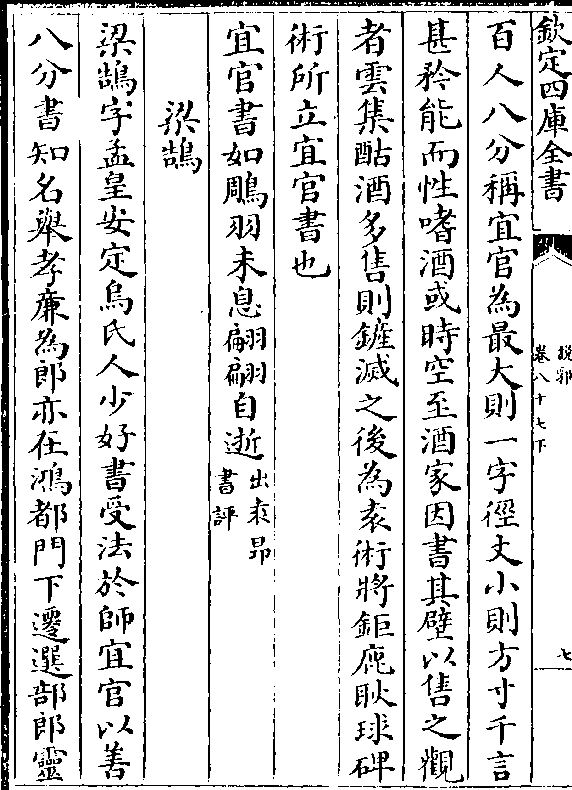 欽定四庫全書
說郛
卷八十七下
七
百人八分稱宜官為最大則一字徑丈小則方寸千言
甚矜能而性嗜酒或時空至酒家因書其壁以售之觀
者雲集酤酒多售則鏟滅之後為袁術將鉅鹿耿球碑
術所立宜官書也
宜官書如鵰羽未息翩翩自逝出袁昂書評
梁鵠
梁鵠字孟皇安定烏氏人少好書受法於師宜官以善
八分書知名舉孝廉為郎亦在鴻都門下遷選部郎靈